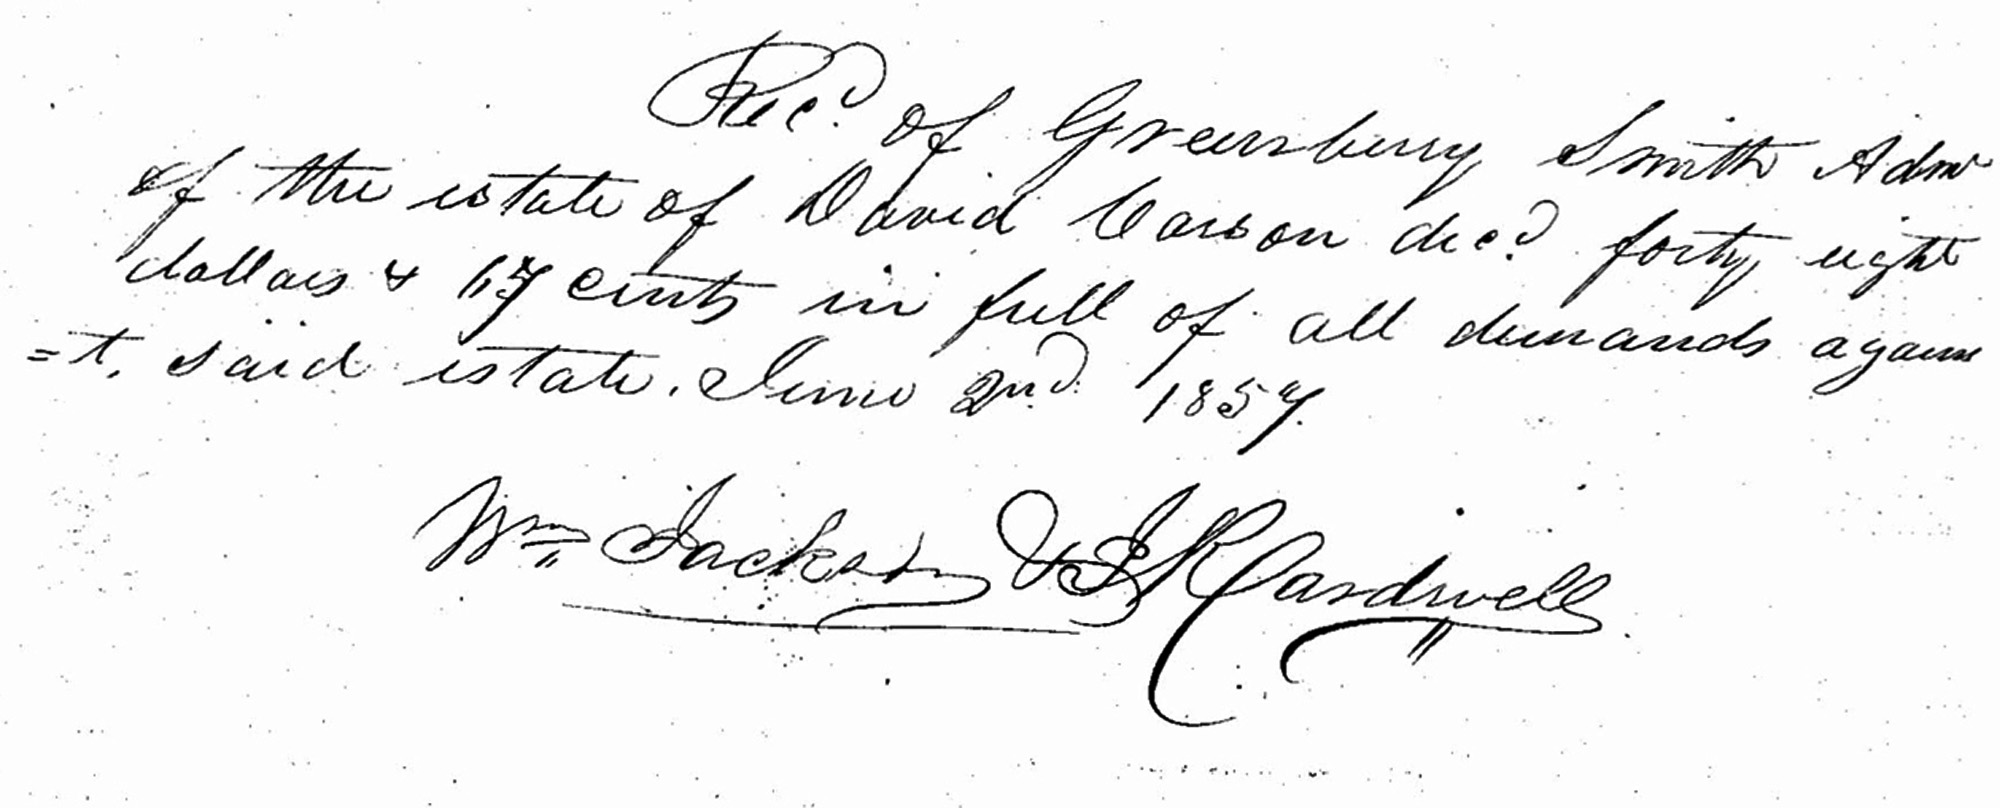 Recd. of Greenberry Smith Admr
of the estate of David Carson decd. forty eight
dollars & 17 cents in full of all demands agains
=t. said estate. June 2nd. 1857.
Wm Jackson & J R Cardwell